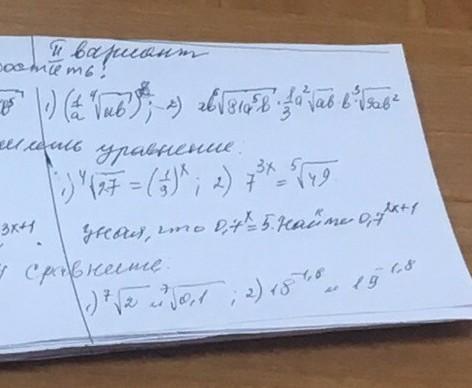 II вариант
ростить:
1) (1/a ⁴√ab)⁸; 2) 2b ⁶√81a⁵b · 1/3 a² √ab · b ³√9ab²
шить уравнение:
1) ⁴√27 = (1/9)ˣ; 2) 7³ˣ = ⁵√49
3x+1
зная, что 0,7ˣ = 5. Найти 0,7²ˣ⁺¹
сравнение:
1) ⁷√2 и ⁷√0,1; 2) 18⁻¹,⁸ и 19⁻¹,⁸